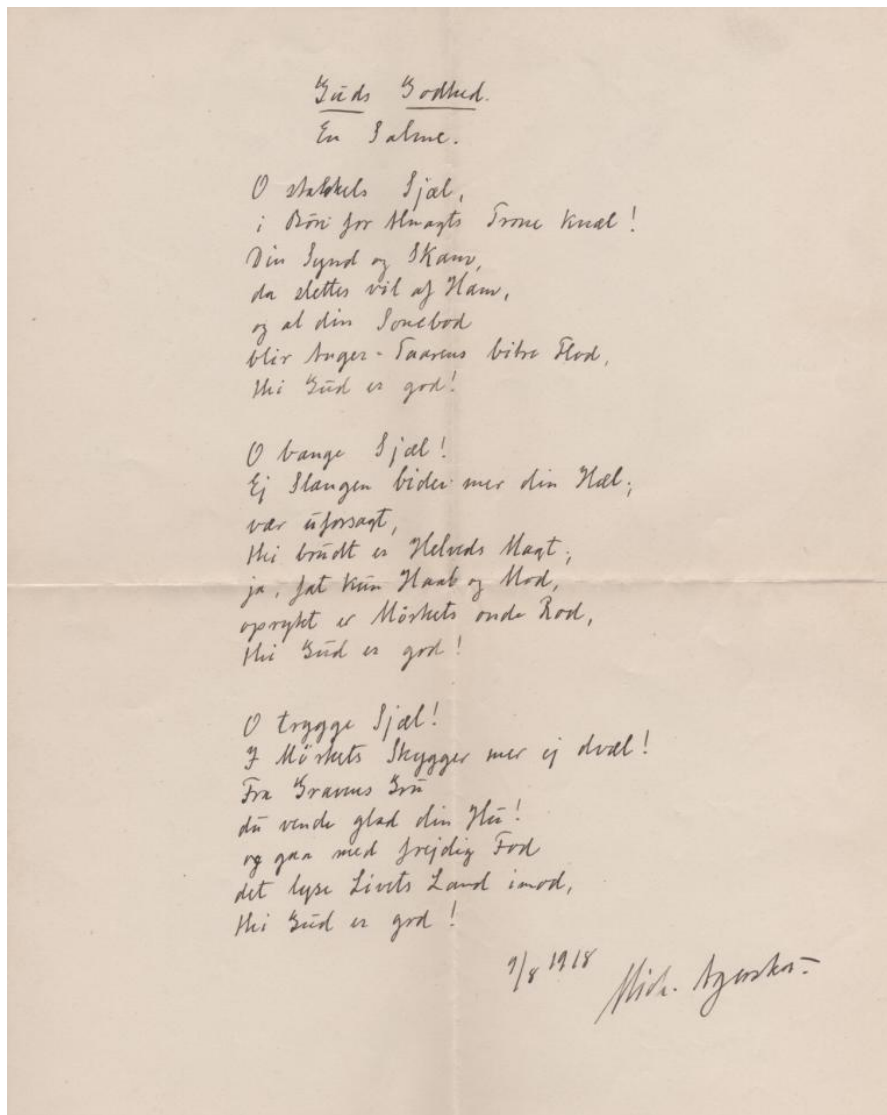 Guds Godhed.
En Salme.
O stakkels Sjæl,
i Bön for Almagts Trone knæl!
Din Synd og Skam,
da slettes vil af Ham,
og al din Sonebod
blir Anger-Taarens bitre Flod,
thi Gud er god!
O bange Sjæl!
Ej Slangen bider mer din Hæl;
vær uforsagt,
thi brudt er Helveds Magt;
ja, fat kun Haab og Mod,
oprykt er Mörkets onde Rod,
thi Gud er god!
O trygge Sjæl!
I Mörkets Skygger mer ej dvæl!
Fra Gravens Gru
du vende glad din Hu!
og gaa med frejdig Fod
det lyse Livets Land imod,
thi Gud er god!
9/8 1918 Mich. Agerskov